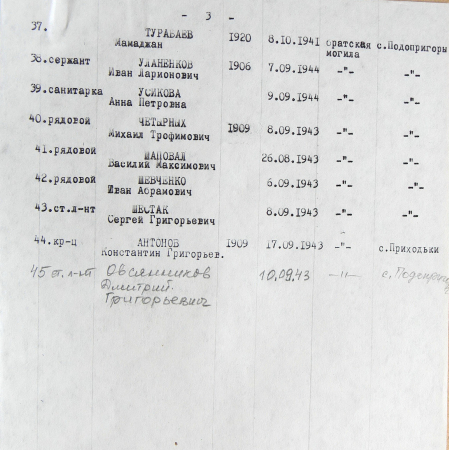 - 3 -
37. ТУРАБАЕВ 1920 8.10.1941 братская с.Подопригоры
Мамаджан могила
38.сержант УЛАНЕНКОВ 1906 7.09.1944 -"- -"-
Иван Ларионович
39.санитарка УСИКОВА 9.09.1944 -"- -"-
Анна Петровна
40.рядовой ЧЕТЫРНЫХ 1909 8.09.1943 -"- -"-
Михаил Трофимович
41.рядовой ШАПОВАЛ 26.08.1943 -"- -"-
Василий Максимович
42.рядовой ШЕВЧЕНКО 6.09.1943 -"- -"-
Иван Абрамович
43.ст.л-нт ШЕСТАК 8.09.1943 -"- -"-
Сергей Григорьевич
44.кр-ц АНТОНОВ 1909 17.09.1943 -"- с.Приходьки
Константин Григорьев.
45 ст.л-нт Овсянников 10.09.43 -"-
Дмитрий
Григорьевич